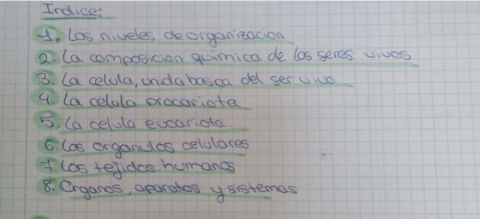 Indice:
1. Los niveles de organizacion
2. La composicion quimica de los seres vivos
3. La celula, unida basica del ser vivo
4. La celula procariota
5. La celula eucariota.
6. Los organulos celulares
7. Los tejidos humanos
8. Organos, aparatos y sistemas